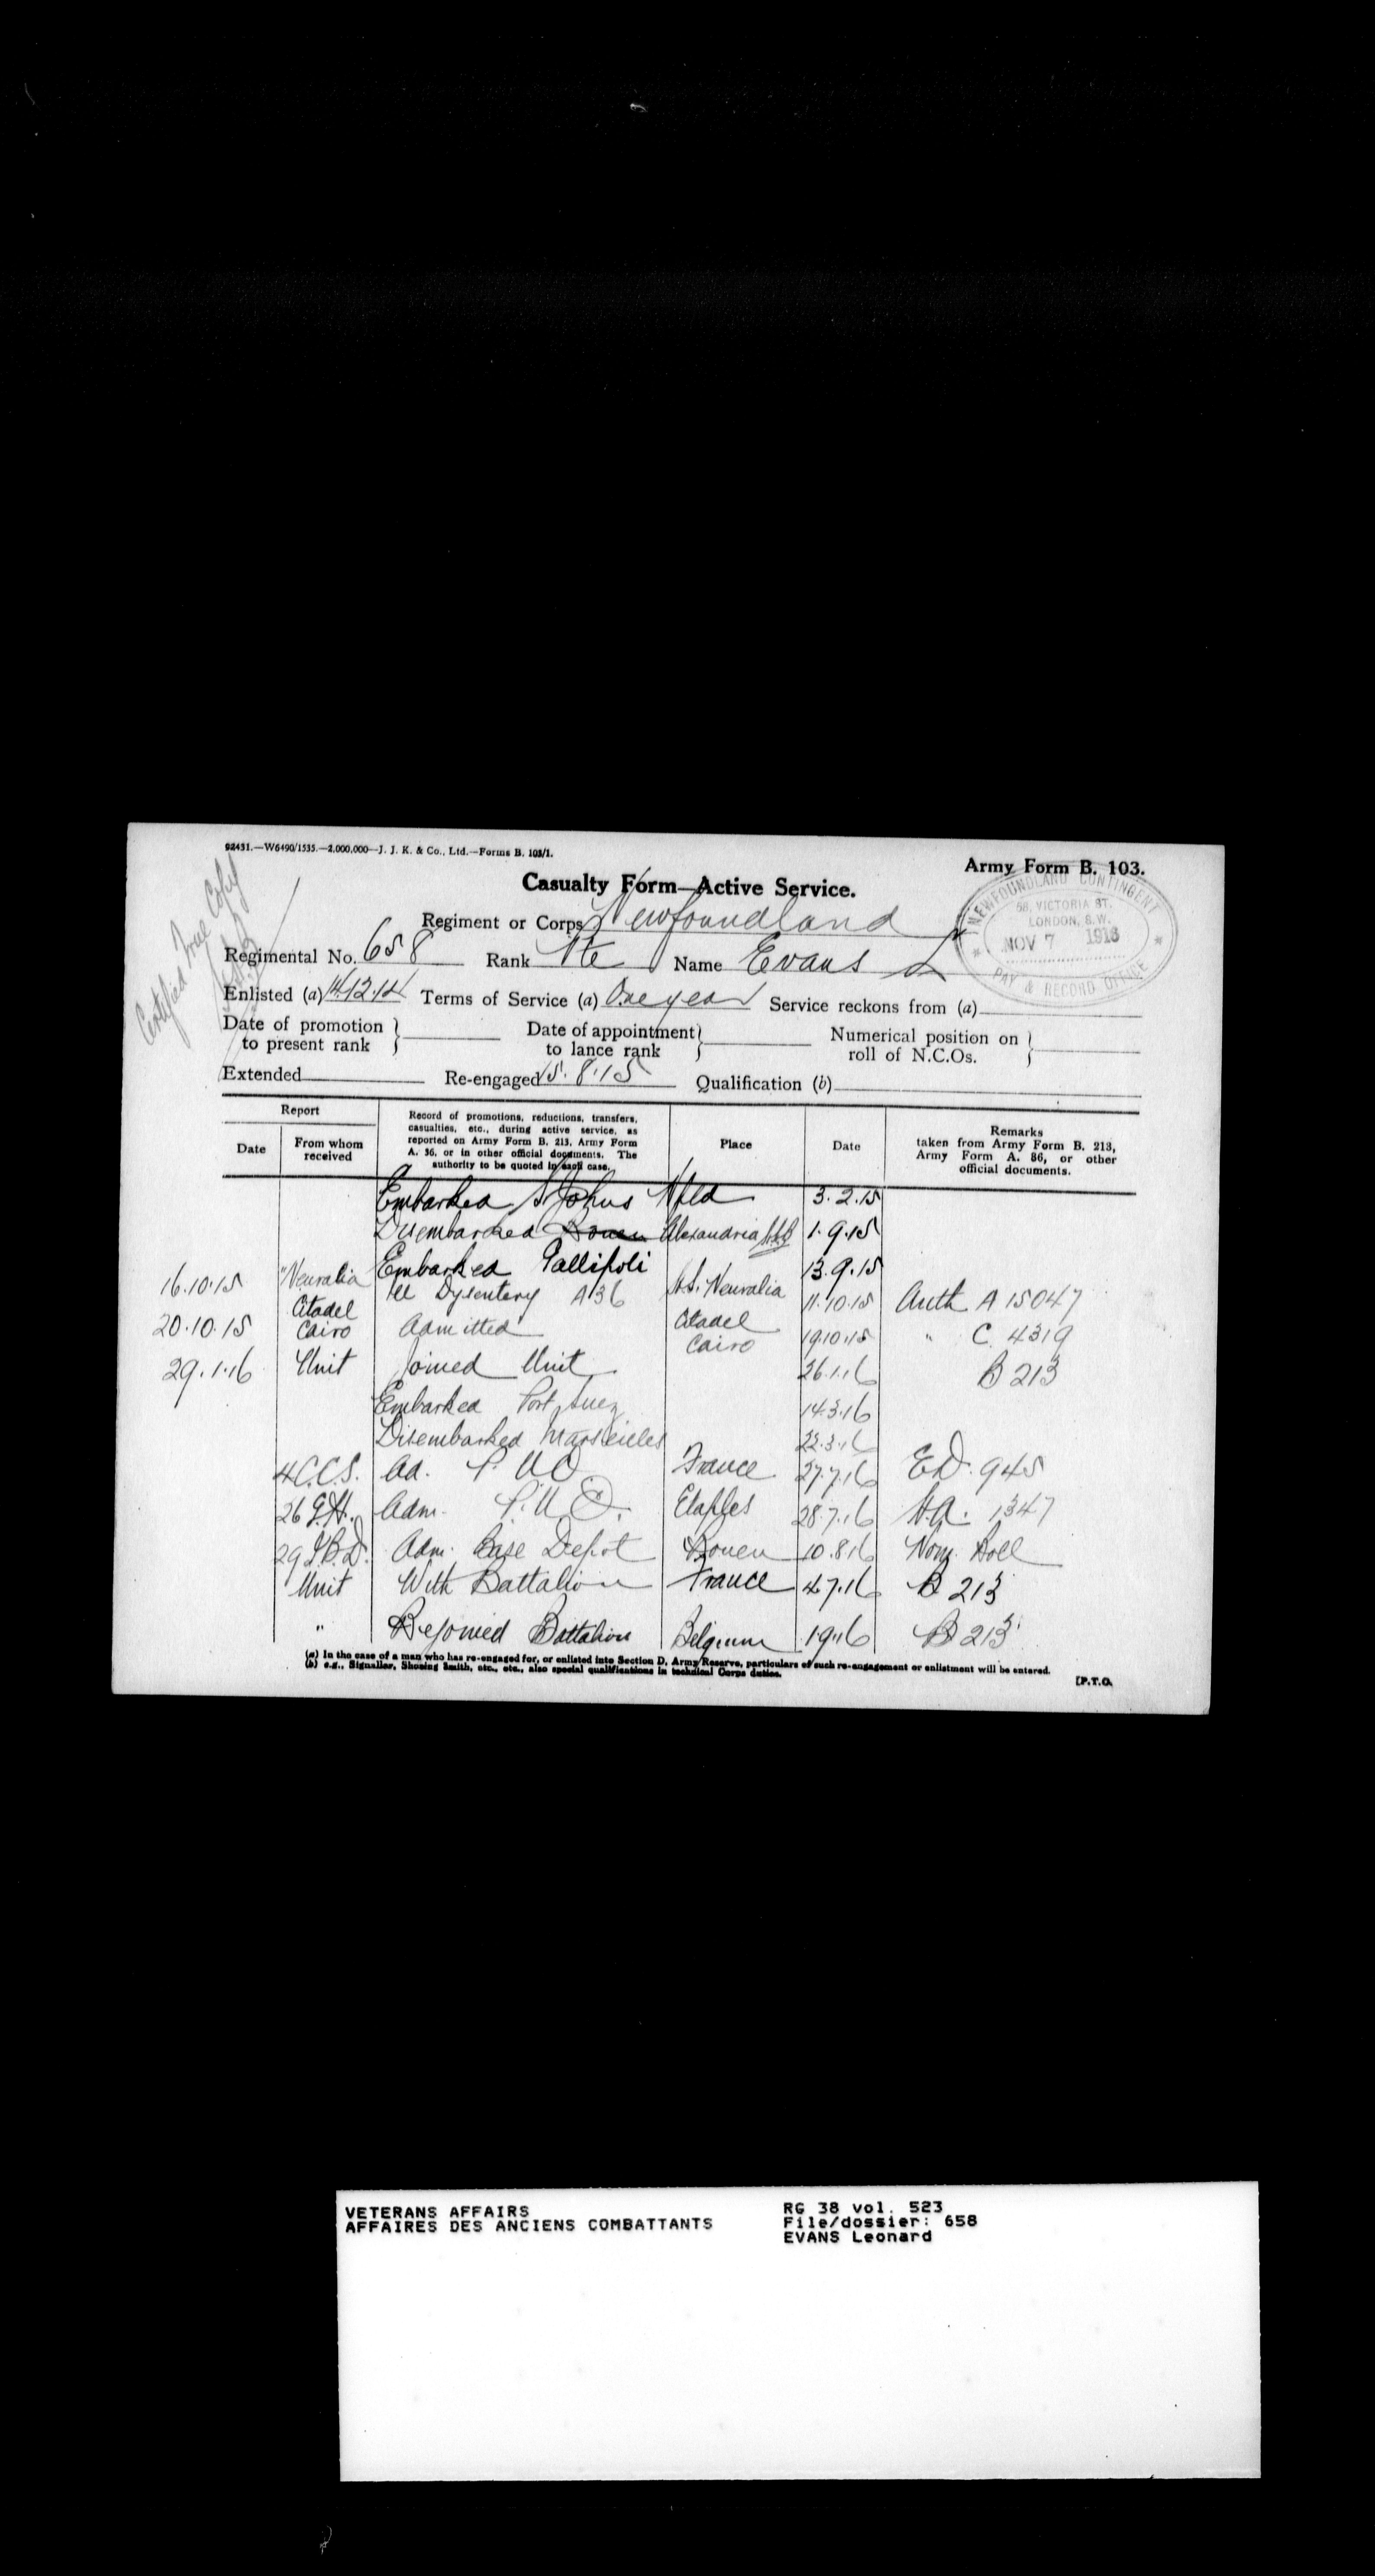 92431.—W6490/1535.—2,000,000—J. J. K. & Co., Ltd.—Forms B. 103/1.
Army Form B. 103.
Casualty Form—Active Service.
NEWFOUNDLAND CONTINGENT
58, VICTORIA ST.
LONDON, S.W.
NOV 7 1916
PAY & RECORD OFFICE
Certified True Copy
Regiment or Corps Newfoundland
Regimental No. 658 Rank Pte Name Evans L
Enlisted (a) 14.12.14 Terms of Service (a) One year Service reckons from (a)
Date of promotion to present rank } Date of appointment to lance rank } Numerical position on roll of N.C.Os. }
Extended Re-engaged 15.8.15 Qualification (b)
Report
Date From whom received Record of promotions, reductions, transfers, casualties, etc., during active service, as reported on Army Form B. 213, Army Form A. 36, or in other official documents. The authority to be quoted in each case. Place Date Remarks taken from Army Form B. 213, Army Form A. 36, or other official documents.
Embarked St Johns Nfld 3.2.15
Disembarked Rouen Alexandria 1.9.15
Embarked Gallipoli 13.9.15
16.10.15 "Neuralia Ill Dysentery A36 H.S. Neuralia 11.10.15 Auth A 15047
20.10.15 Citadel Cairo Admitted Citadel Cairo 19.10.15 " C. 4319
29.1.16 Unit Joined Unit 26.1.16 B 213
Embarked Port Suez 14.3.16
Disembarked Marseilles 22.3.16
4 C.C.S. Ad. P.U.O France 27.7.16 ED. 945
26 G.H. Adm. P.U.O. Etaples 28.7.16 H.A. 1347
29 I.B.D. Adm. Base Depot Rouen 10.8.16 Nom. Roll
Unit With Battalion France 4.7.16 B 213
" Rejoined Battalion Belgium B 213
(a) In the case of a man who has re-engaged for, or enlisted into Section D, Army Reserve, particulars of such re-engagement or enlistment will be entered.
(b) e.g., Signaller, Shoeing Smith, etc., etc., also special qualifications in technical Corps duties.
[P.T.O.
VETERANS AFFAIRS
AFFAIRES DES ANCIENS COMBATTANTS
RG 38 vol. 523
File/dossier: 658
EVANS Leonard